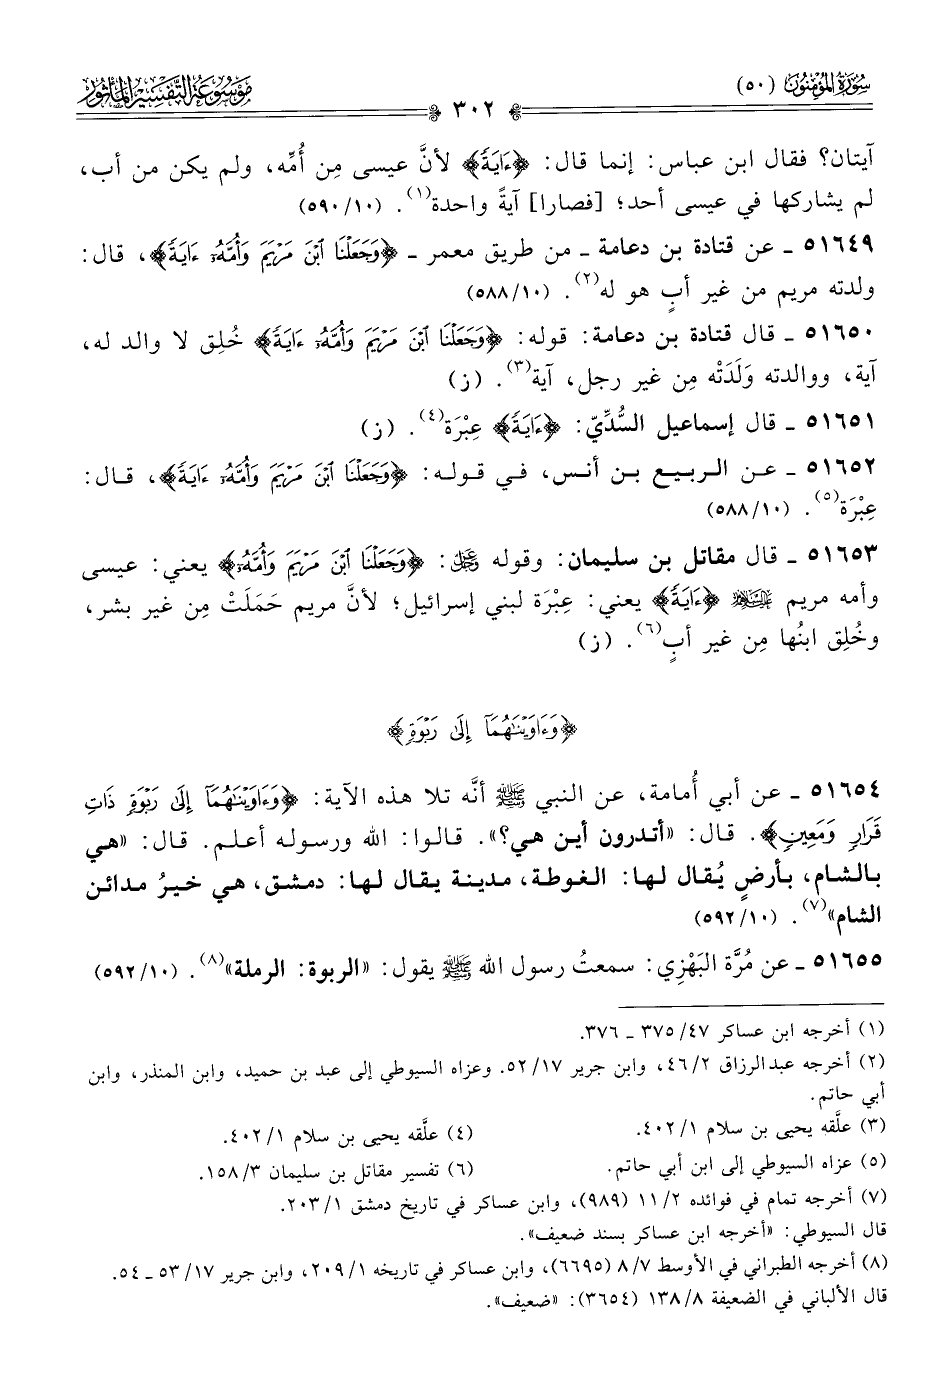 سُورَةُ المُؤْمِنُون (٥٠)
٣٠٢
مَوْسُوعَةُ التَّفْسِيرِ المَأْثُور
آيتان؟ فقال ابن عباس: إنما قال: ﴿ءَايَةً﴾ لأنَّ عيسى مِن أُمِّه، ولم يكن من أب،
لم يشاركها في عيسى أحد؛ [فصارا] آيةً واحدة(١). (١٠/٥٩٠)
٥١٦٤٩ ـ عن قتادة بن دعامة ـ من طريق معمر ـ ﴿وَجَعَلْنَا ٱبْنَ مَرْيَمَ وَأُمَّهُۥٓ ءَايَةً﴾، قال:
ولدته مريم من غير أبٍ هو له(٢). (١٠/٥٨٨)
٥١٦٥٠ ـ قال قتادة بن دعامة: قوله: ﴿وَجَعَلْنَا ٱبْنَ مَرْيَمَ وَأُمَّهُۥٓ ءَايَةً﴾ خُلِق لا والد له،
آية، ووالدته وَلَدَتْه مِن غير رجل، آية(٣). (ز)
٥١٦٥١ ـ قال إسماعيل السُّدِّيّ: ﴿ءَايَةً﴾ عِبْرَة(٤). (ز)
٥١٦٥٢ ـ عن الربيع بن أنس، في قوله: ﴿وَجَعَلْنَا ٱبْنَ مَرْيَمَ وَأُمَّهُۥٓ ءَايَةً﴾، قال:
عِبْرَة(٥). (١٠/٥٨٨)
٥١٦٥٣ ـ قال مقاتل بن سليمان: وقوله ﷿: ﴿وَجَعَلْنَا ٱبْنَ مَرْيَمَ وَأُمَّهُۥٓ﴾ يعني: عيسى
وأمه مريم عليها السلام ﴿ءَايَةً﴾ يعني: عِبْرَة لبني إسرائيل؛ لأنَّ مريم حَمَلَتْ مِن غير بشر،
وخُلِق ابنُها مِن غير أبٍ(٦). (ز)
﴿وَءَاوَيْنَٰهُمَآ إِلَىٰ رَبْوَةٍ﴾
٥١٦٥٤ ـ عن أبي أُمامة، عن النبي ﷺ أنَّه تلا هذه الآية: ﴿وَءَاوَيْنَٰهُمَآ إِلَىٰ رَبْوَةٍ ذَاتِ
قَرَارٍ وَمَعِينٍ﴾. قال: «أتدرون أين هي؟». قالوا: الله ورسوله أعلم. قال: «هي
بالشام، بأرضٍ يُقال لها: الغوطة، مدينة يقال لها: دمشق، هي خيرُ مدائن
الشام»(٧). (١٠/٥٩٢)
٥١٦٥٥ ـ عن مُرَّة البَهْزِي: سمعتُ رسول الله ﷺ يقول: «الربوة: الرملة»(٨). (١٠/٥٩٢)
(١) أخرجه ابن عساكر ٤٧/٣٧٥ ـ ٣٧٦.
(٢) أخرجه عبدالرزاق ٢/٤٦، وابن جرير ١٧/٥٢. وعزاه السيوطي إلى عبد بن حميد، وابن المنذر، وابن
أبي حاتم.
(٣) علَّقه يحيى بن سلام ١/٤٠٢. (٤) علَّقه يحيى بن سلام ١/٤٠٢.
(٥) عزاه السيوطي إلى ابن أبي حاتم. (٦) تفسير مقاتل بن سليمان ٣/١٥٨.
(٧) أخرجه تمام في فوائده ٢/١١ (٩٨٩)، وابن عساكر في تاريخ دمشق ١/٢٠٣.
قال السيوطي: «أخرجه ابن عساكر بسند ضعيف».
(٨) أخرجه الطبراني في الأوسط ٧/٨ (٦٦٩٥)، وابن عساكر في تاريخه ١/٢٠٩، وابن جرير ١٧/٥٣ ـ ٥٤.
قال الألباني في الضعيفة ٨/١٣٨ (٣٦٥٤): «ضعيف».